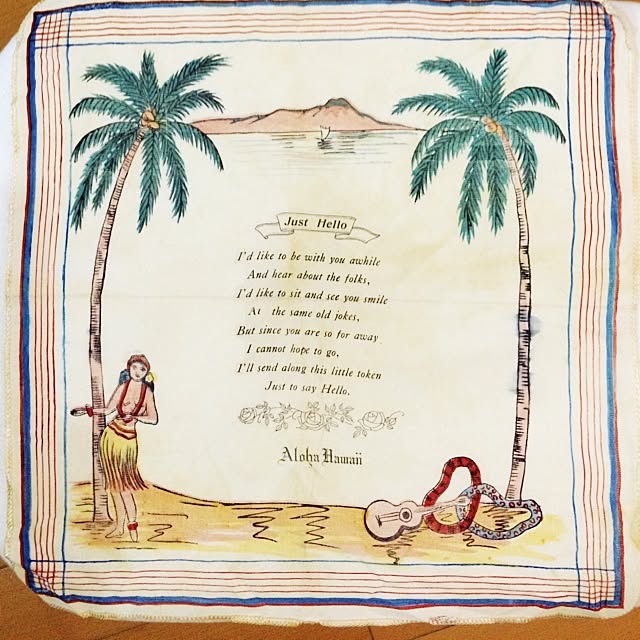 Just Hello
I'd like to be with you awhile
And hear about the folks,
I'd like to sit and see you smile
At the same old jokes,
But since you are so far away
I cannot hope to go,
I'll send along this little token
Just to say Hello.
Aloha Hawaii